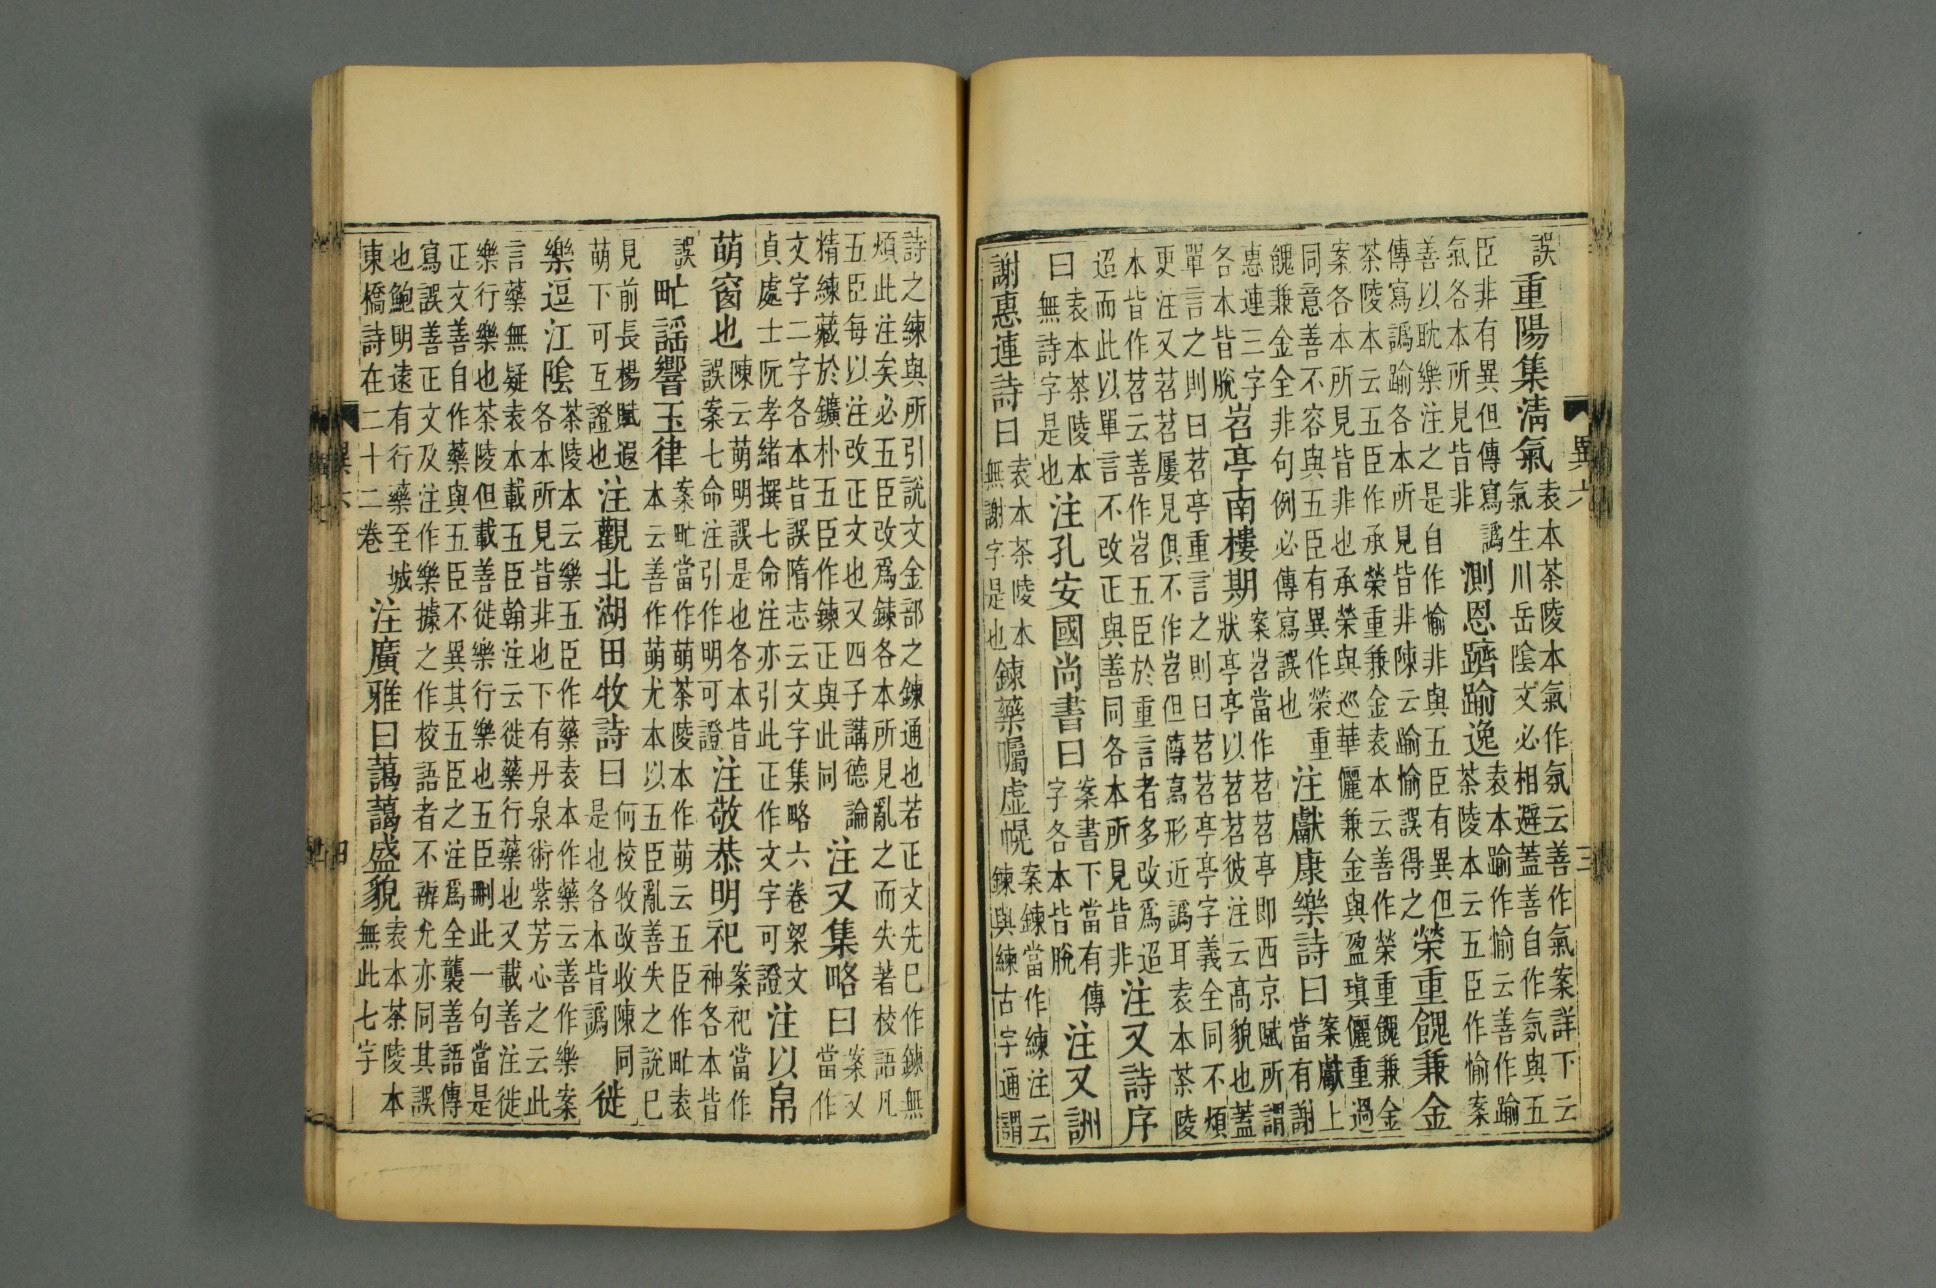 誤重陽集清氣袁本茶陵本氣作氛云善作氣案詳下云氣生川岳陰文必相避蓋善自作氛與五
臣非有異但傳寫譌氣各本所見皆非測恩躋踰逸袁本踰作愉云善作踰茶陵本云五臣作愉案
善以耽樂注之是自作愉非與五臣有異但傳寫譌踰各本所見皆非陳云踰愉誤得之榮重餽兼金
茶陵本云五臣作承榮重兼金袁本云善作榮重餽兼金案各本所見皆非也承榮與巡華儷兼金與盈瑱儷重過
同意善不容與五臣有異作榮重餽兼金全非句例必傳寫誤也注獻康樂詩曰案獻上當有謝
惠連三字各本皆脫岧亭南樓期案岧當作苕苕亭即西京賦所謂狀亭亭以苕苕彼注云高貌也蓋
單言之則曰苕亭重言之則曰苕苕亭亭字義全同不煩更注又苕苕屢見俱不作岧但傳寫形近譌耳袁本茶陵
本皆作苕云善作岧五臣於重言者多改爲迢迢而此以單言不改正與善同各本所見皆非注又詩序
曰袁本茶陵本無詩字是也注孔安國尚書曰案書下當有傳字各本皆脫注又詶
謝惠連詩曰袁本茶陵本無謝字是也鍊藥矚虛幌案鍊當作練注云鍊與練古字通謂
異六
三
詩之練與所引說文金部之鍊通也若正文先已作鍊無煩此注矣必五臣改爲鍊各本所見亂之而失著校語凡
五臣每以注改正文也又四子講德論精練藏於鑛朴五臣作鍊正與此同注又集略曰案又當作
文字二字各本皆誤隋志云文字集略六卷梁文貞處士阮孝緒撰七命注亦引此正作文字可證注以帛
萌窗也陳云萌明誤是也各本皆誤案七命注引作明可證注敬恭明祀案祀當作神各本皆
誤甿謡響玉律案甿當作萌茶陵本作萌云五臣作甿袁本云善作萌尤本以五臣亂善失之說已
見前長楊賦遐萌下可互證也注觀北湖田牧詩曰何校牧改收陳同是也各本皆譌徙
樂逗江陰茶陵本云樂五臣作藥袁本作藥云善作樂案各本所見皆非也下有丹泉術紫芳心之云此
言藥無疑袁本載五臣翰注云徙藥行藥也又載善注徙樂行樂也茶陵但載善徙樂行樂也五臣刪此一句當是
正文善自作藥與五臣不異其五臣之注爲全襲善語傳寫誤善正文及注作樂據之作校語者不辨尤亦同其誤
也鮑明遠有行藥至城東橋詩在二十二卷注廣雅曰藹藹盛貌袁本茶陵本無此七字